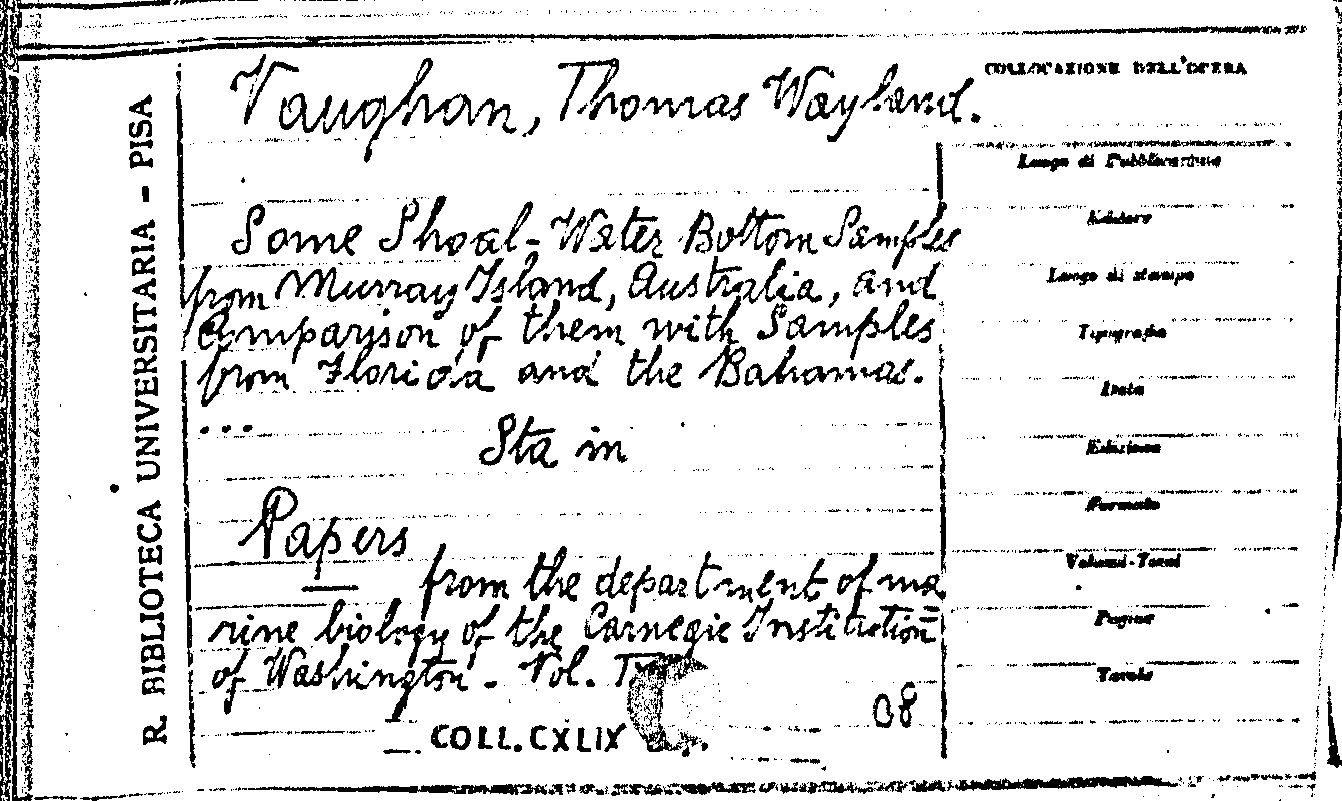 Vaughan, Thomas Wayland.
Some Shoal-Water Bottom Samples
from Murray Island, Australia, and
Comparison of them with Samples
from Florida and the Bahamas.
...
Sta in
Papers
from the department of ma
rine biology of the Carnegie Institution
of Washington - Vol.
08
COLL. CXLIX
R. BIBLIOTECA UNIVERSITARIA - PISA
COLLOCAZIONE DELL'OPERA
Luogo di Pubblicazione
Editore
Luogo di stampa
Tipografia
Data
Edizione
Formato
Volumi-Tomi
Pagine
Tavole